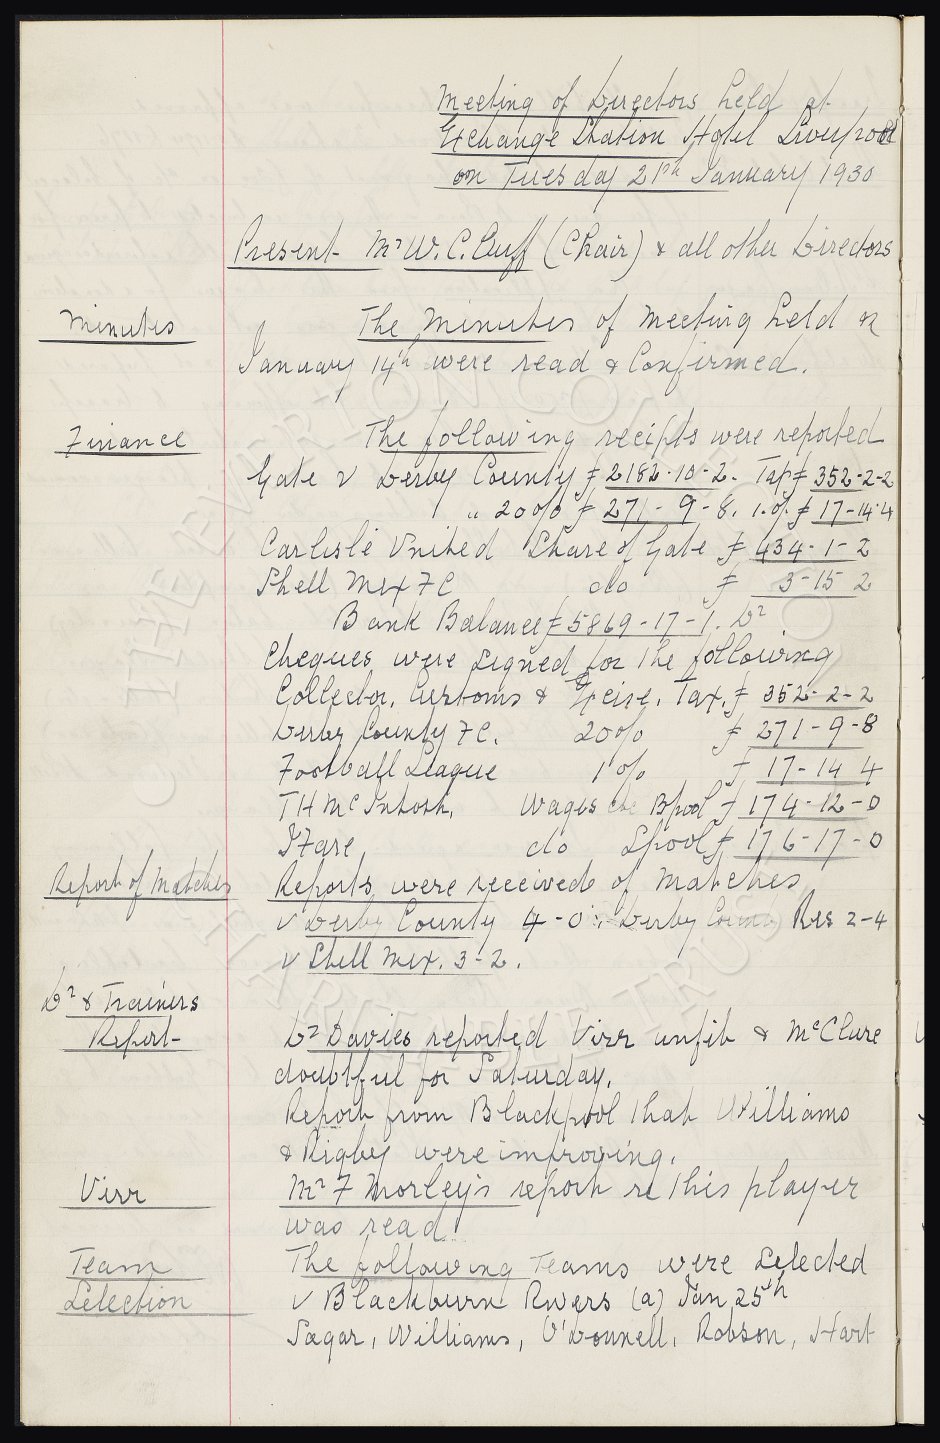 Meeting of Directors held at
Exchange Station Hotel Liverpool
on Tuesday 21st January 1930
Present Mr W. C. Cuff (Chair) & all other Directors
Minutes
The Minutes of Meeting held on
January 14th were read & Confirmed.
Finance
The following receipts were reported
Gate v Derby County £2182-10-2. Tax £352-2-2
" 20% £271-9-8. 1% £17-14-4
Carlisle United Share of Gate £434-1-2
Shell Mex FC do £3-15 2
Bank Balance £5869-17-1. Dr
Cheques were signed for the following
Collector, Customs & Excise, Tax, £352-2-2
Derby County FC. 20% £271-9-8
Football League 1% £17-14 4
TH McIntosh, Wages etc Bpool £174-12-0
do Lpool £176-17-0
Report of Matches
Reports were received of Matches
v Derby County 4-0: Derby County Res 2-4
v Shell Mex. 3-2.
Dr & Trainers
Report
Dr Davies reported Virr unfit & McClure
doubtful for Saturday.
Report from Blackpool that Williams
& Rigby were improving.
Virr
Mr F Morley's report re this player
was read.
Team
Selection
The following Teams were selected
v Blackburn Rovers (a) Jan 25th
Sagar, Williams, O'Donnell, Robson, Hart
© THE EVERTON COLLECTION CHARITABLE TRUST